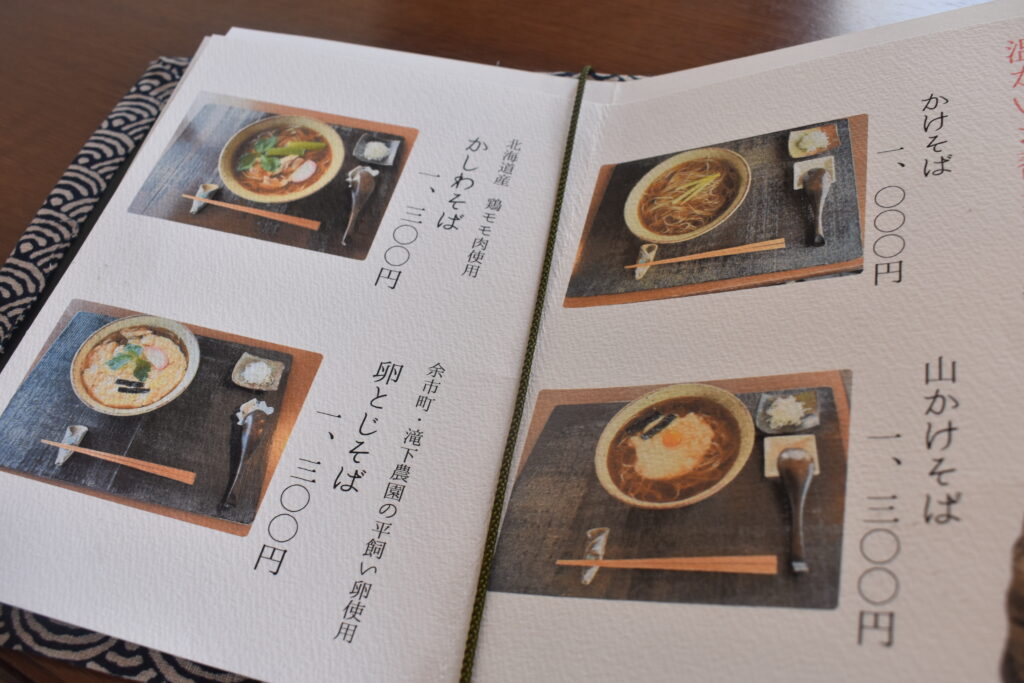 温かい
かけそば
一、〇〇〇円
山かけそば
一、三〇〇円
北海道産 鶏モモ肉使用
かしわそば
一、三〇〇円
余市町・滝下農園の平飼い卵使用
卵とじそば
一、三〇〇円